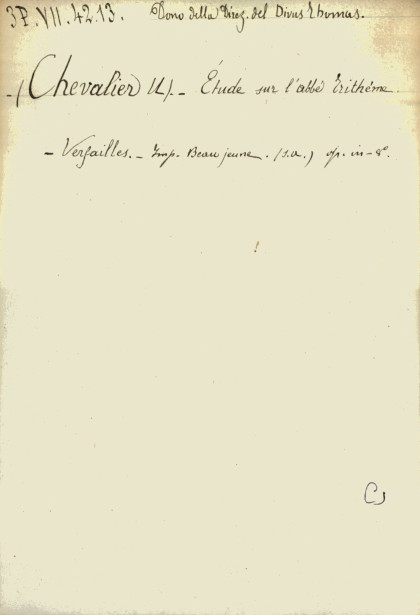 3P.VII.42.13. Dono della Direz. del Divus Thomas.
-(Chevalier U.). - Étude sur l'abbé Trithème.
- Versailles. - Imp. Beau jeune. (s.a.) op. in-8°.